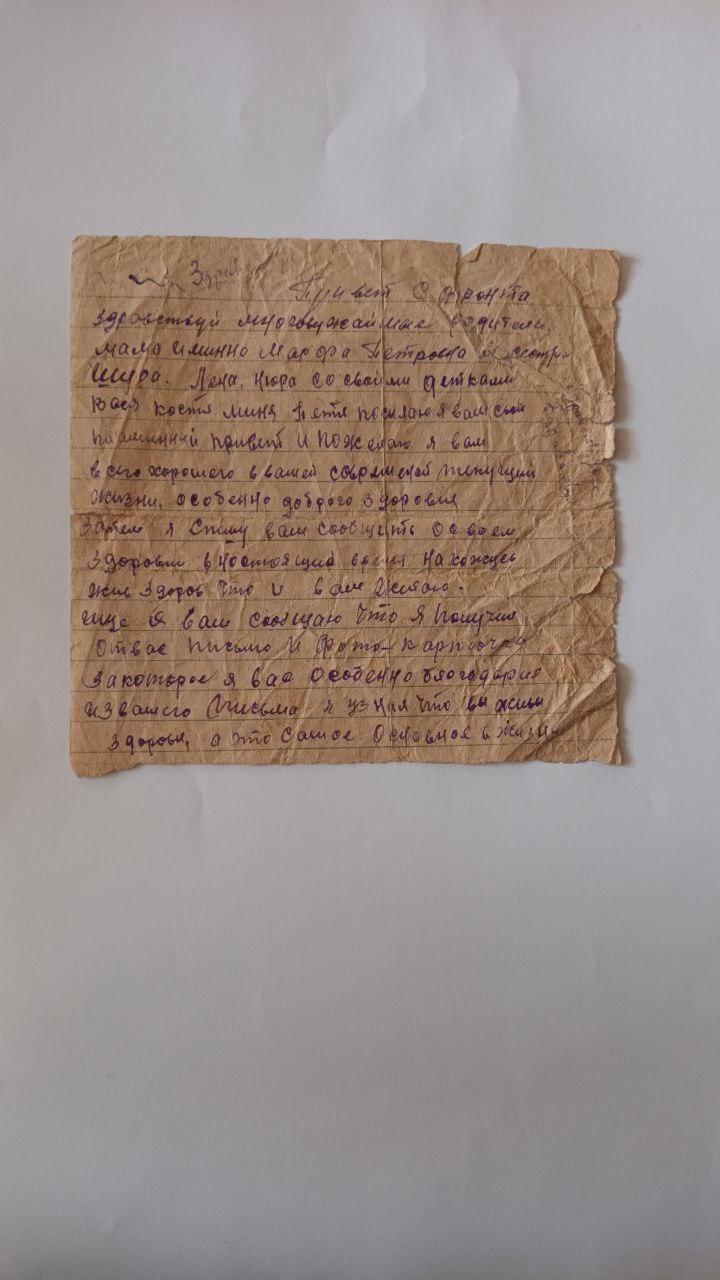 Здрав
Привет с фронта
Здравствуй многоуважаймые родители
мама иминно Марфа Петровна и сестры
Шура. Лена, Нюра со своими детками
Вася Костя Миня Петя посылаю я вам свой
пламминый привет и пожелаю я вам
всего хорошего в вашей современой текущий
жизни, особенно доброго здоровия
Затем я спешу вам сообщить о своем
здоровии в ностоящие время нахожусь
жив здоров что и вам желаю.
ище я вам сообщаю что я получил
отвас письмо и фото-карточку
закоторое я вас особенно благодарю
из вашего письма я узнал что вы живы
здоровы, а это самое основное в жизни